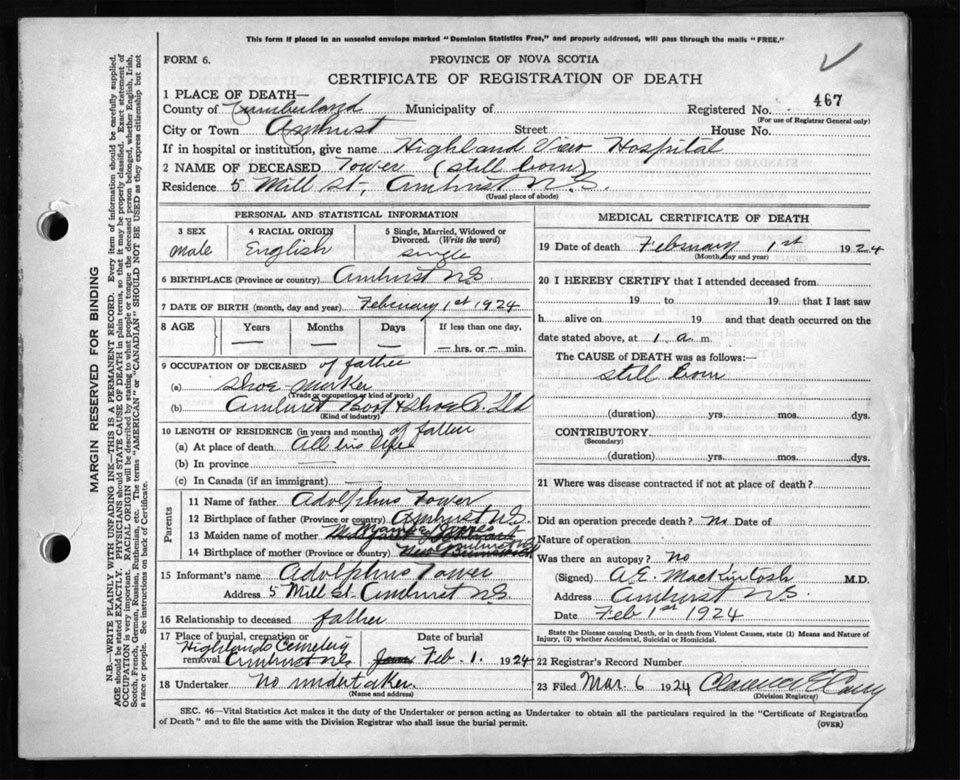 This form if placed in an unsealed envelope marked "Dominion Statistics Free," and properly addressed, will pass through the mails "FREE."
FORM 6.
PROVINCE OF NOVA SCOTIA
CERTIFICATE OF REGISTRATION OF DEATH
1 PLACE OF DEATH—
County of Cumberland Municipality of Registered No. 467
(For use of Registrar General only)
City or Town Amherst Street House No.
If in hospital or institution, give name Highland View Hospital
2 NAME OF DECEASED Tower (still born)
Residence 5 Mill St, Amherst N.S.
(Usual place of abode)
PERSONAL AND STATISTICAL INFORMATION
3 SEX 4 RACIAL ORIGIN 5 Single, Married, Widowed or Divorced. (Write the word)
male English single
6 BIRTHPLACE (Province or country) Amherst N.S.
7 DATE OF BIRTH (month, day and year) February 1st 1924
8 AGE Years Months Days If less than one day,
— — — — hrs. or — min.
9 OCCUPATION OF DECEASED of father
(a) Shoe Worker
(Trade or occupation or kind of work)
(b) Amherst Boot & Shoe Co. Ltd
(Kind of industry)
10 LENGTH OF RESIDENCE (in years and months) of father
(a) At place of death All his life
(b) In province —
(c) In Canada (if an immigrant)
Parents
11 Name of father Adolphus Tower
12 Birthplace of father (Province or country) Amherst N.S.
13 Maiden name of mother
14 Birthplace of mother (Province or country) New Brunswick
15 Informant's name Adolphus Tower
Address 5 Mill St. Amherst N.S.
16 Relationship to deceased father
17 Place of burial, cremation or removal Highlands Cemetery Amherst N.S. Date of burial Feb. 1. 1924
18 Undertaker no undertaker.
(Name and address)
MEDICAL CERTIFICATE OF DEATH
19 Date of death February 1st 1924
(Month, day and year)
20 I HEREBY CERTIFY that I attended deceased from
19 to 19 that I last saw
h alive on 19 and that death occurred on the
date stated above, at 1 a. m.
The CAUSE OF DEATH was as follows:—
still born
(duration) yrs. mos. dys.
CONTRIBUTORY
(Secondary)
(duration) yrs. mos. dys.
21 Where was disease contracted if not at place of death?
Did an operation precede death? no Date of
Nature of operation
Was there an autopsy? no
(Signed) A.E. Mackintosh M.D.
Address Amherst N.S.
Date Feb 1st 1924
State the Disease causing Death, or in death from Violent Causes, state (1) Means and Nature of
Injury, (2) whether Accidental, Suicidal or Homicidal.
22 Registrar's Record Number
23 Filed Mar. 6 1924
(Division Registrar)
SEC. 46—Vital Statistics Act makes it the duty of the Undertaker or person acting as Undertaker to obtain all the particulars required in the "Certificate of Registration
of Death" and to file the same with the Division Registrar who shall issue the burial permit.
(OVER)
MARGIN RESERVED FOR BINDING
N.B.—WRITE PLAINLY WITH UNFADING INK—THIS IS A PERMANENT RECORD. Every item of information should be carefully supplied.
AGE should be stated EXACTLY. PHYSICIANS should STATE CAUSE OF DEATH in plain terms, so that it may be properly classified. Exact statement of
OCCUPATION is very important. RACIAL ORIGIN will be described by stating to what people or tongue the deceased person belonged, whether English, Irish,
Scotch, French, German, Russian, Ruthenian, etc. The terms "AMERICAN" or "CANADIAN" SHOULD NOT BE USED as they express citizenship but not
a race or people. See instructions on back of Certificate.